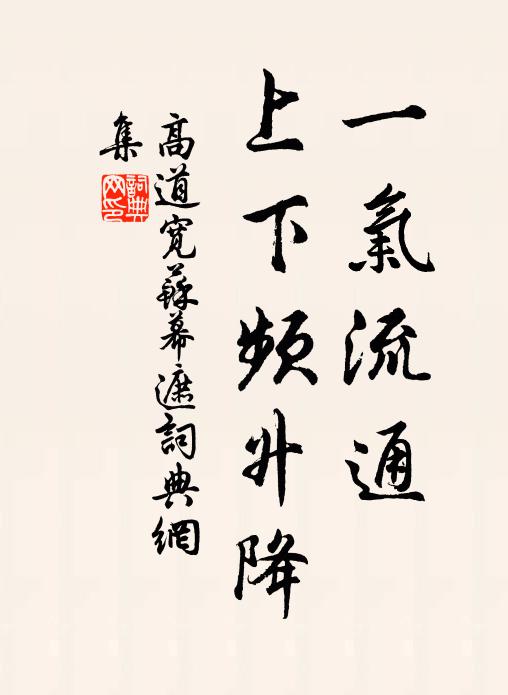 一氣流通
上下頻升降
高道寬蘇幕遮詞典網
集
詞典
网印